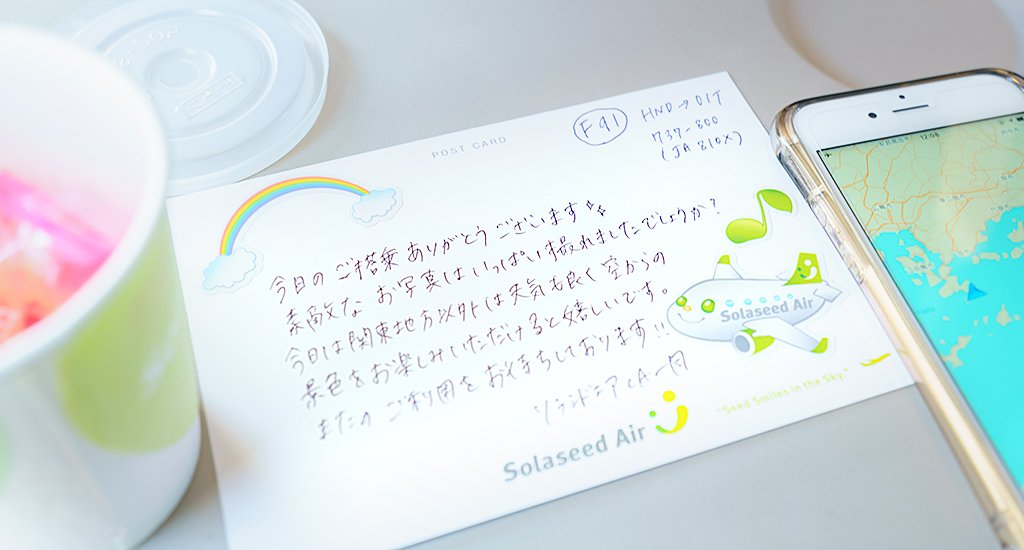 POST CARD
F91
HND→OIT
737-800
(JA810X)
今日のご搭乗ありがとうございます
素敵なお写真はいっぱい撮れましたでしょうか?
今日は関東地方以外は天気も良く空からの
景色をお楽しみいただけると嬉しいです。
またのご利用をお待ちしております!!
ソラシドエアCA一同
Solaseed Air
Solaseed Air
"Seed Smiles in the Sky."
12:08